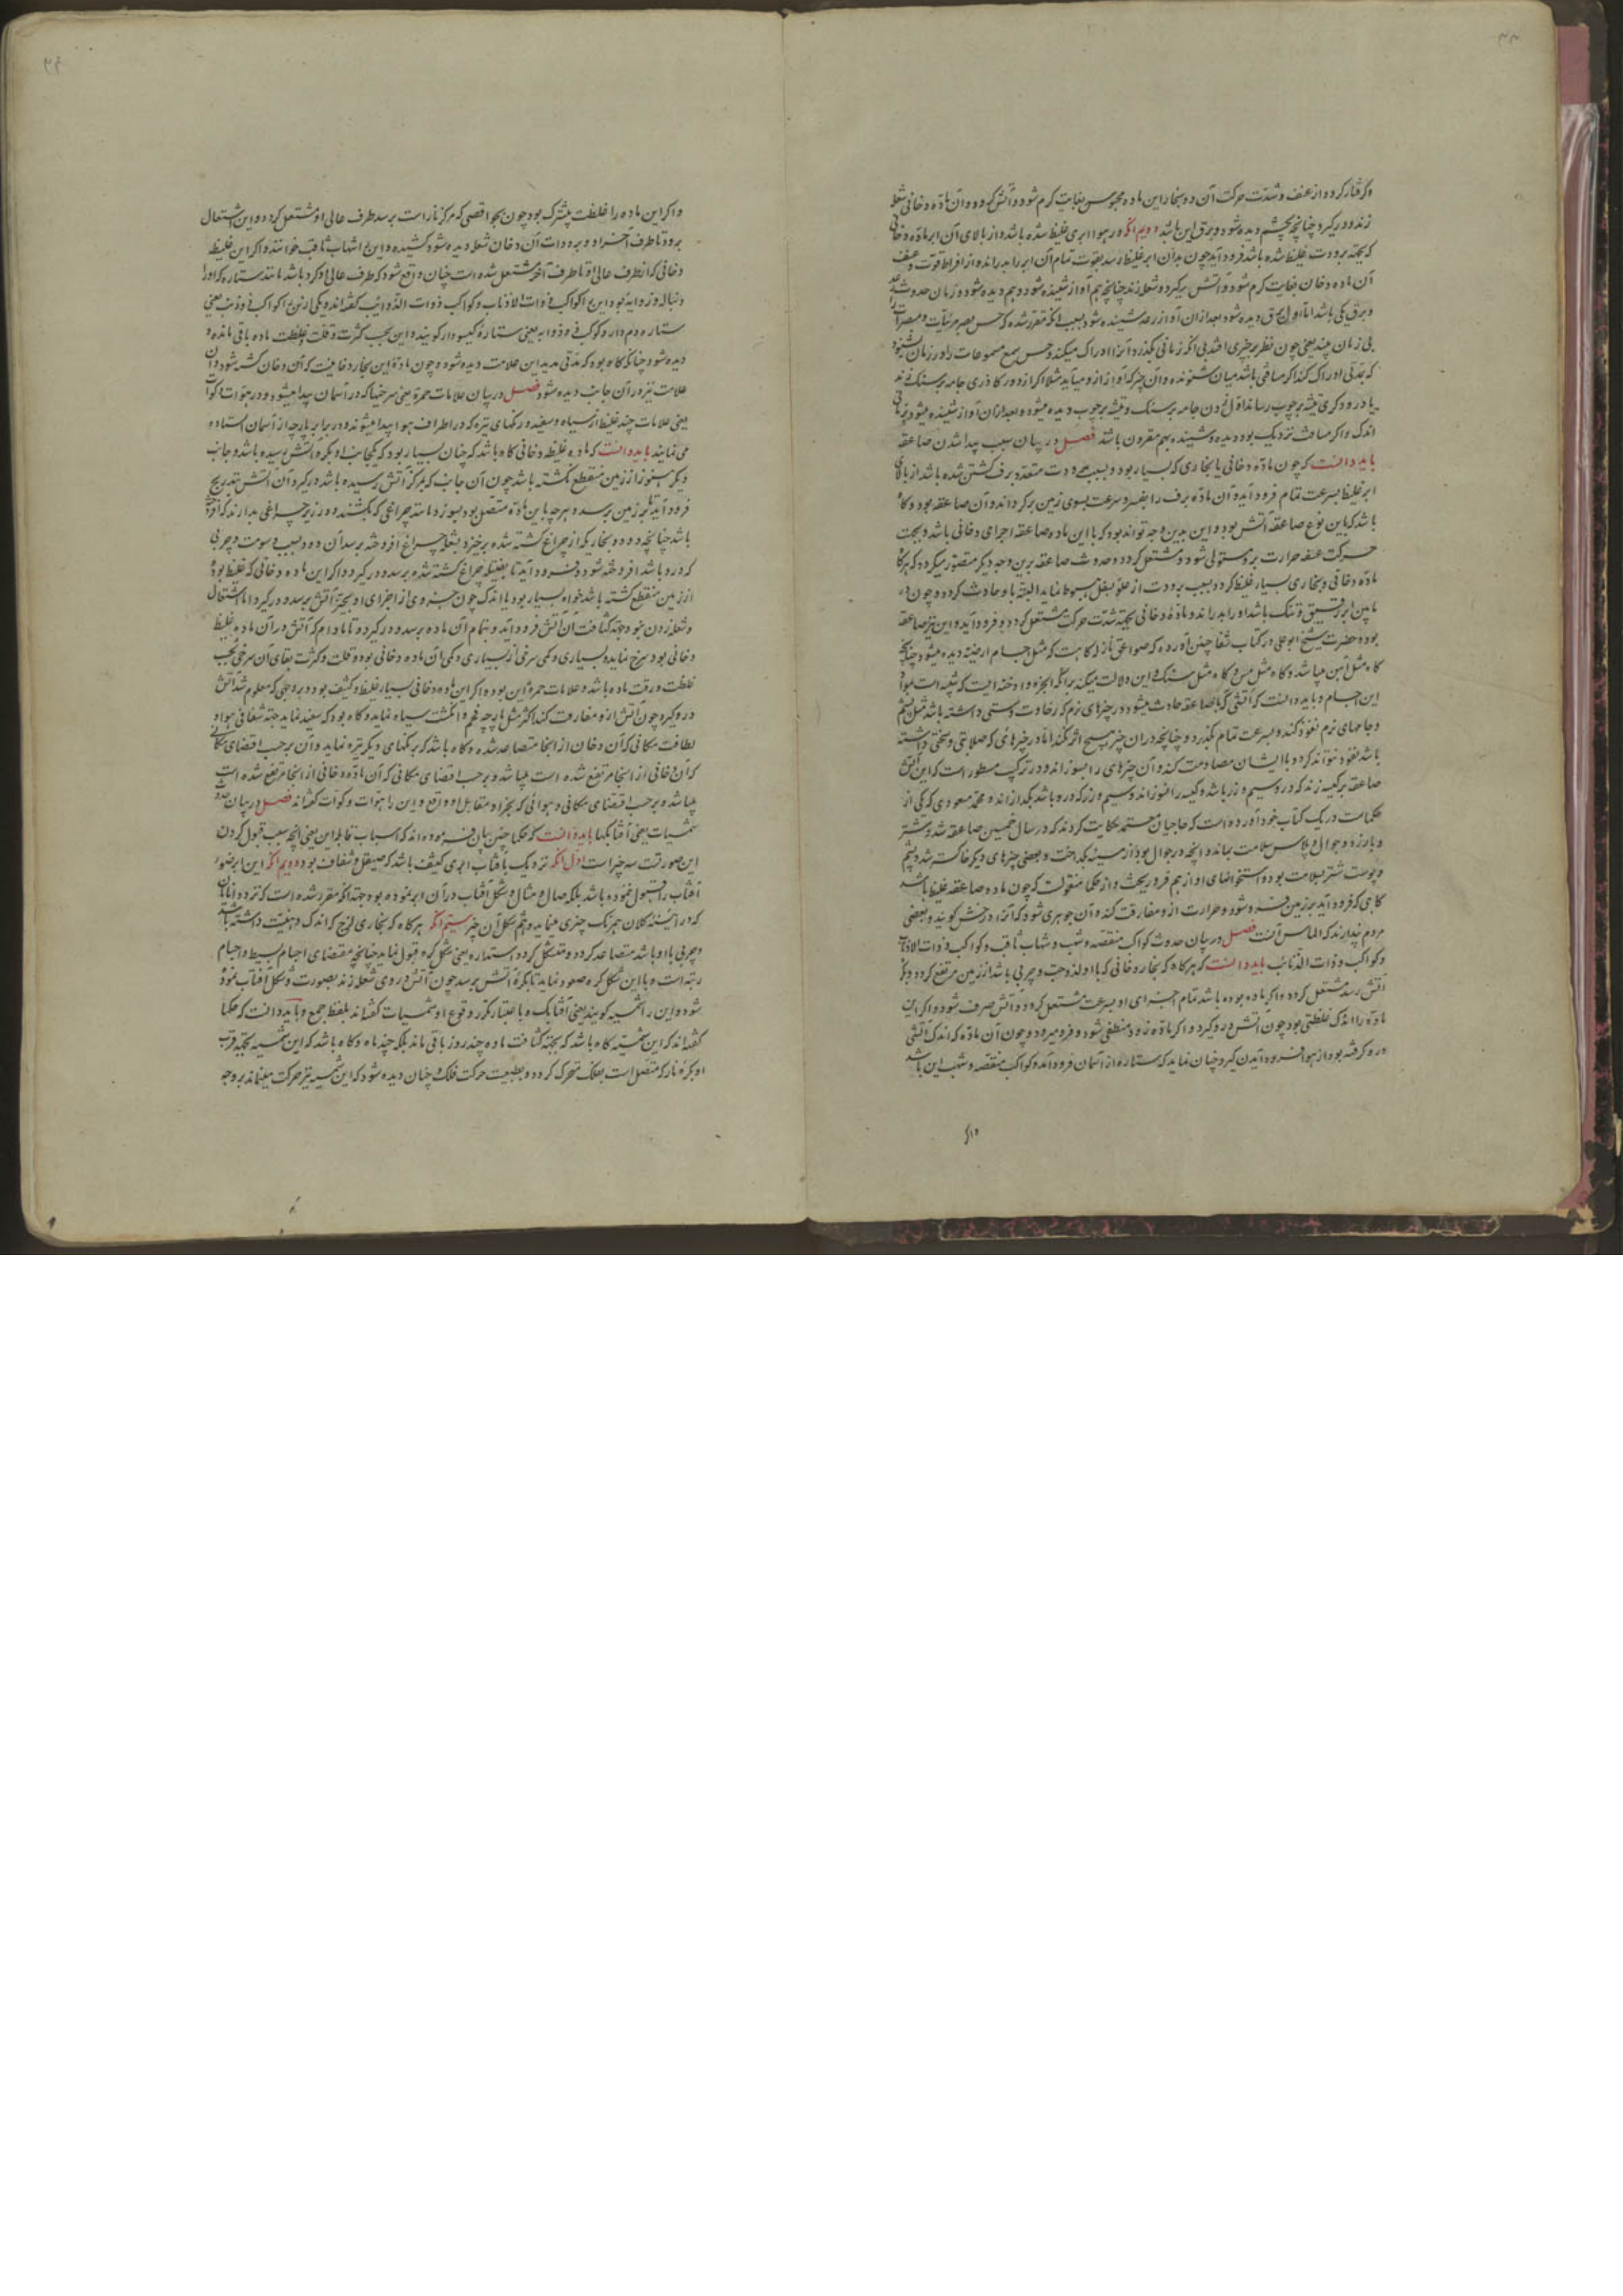 وگرفتار گردد از عنف و شدت حرکت آن دو بخار این ماده محبوس بغایت گرم شود و آتش گردد و آن ماده دخانی شعله
زند و درگیرد چنانچه بچشم دیده شود و برق این باشد دویم آنکه در هوا ابری غلیظ شده باشد و از بالای آن ابر ماده دخانی
که بجهة برودت غلیظ شده باشد فرود آید چون بدان ابر غلیظ رسد بقوت تمام آن ابر را بدراند و از افراط قوت و عنف
آن ماده دخان بغایت گرم شود و آتش گردد و شعله زند چنانچه هم آواز شنیده شود و هم دیده شود و زمان حدوث رعد
و برق یکی باشد اما اول برق دیده شود بعد از آن آواز رعد شنیده شود بسبب آنکه مقرر شده که حس بصر مرئیات و مبصرات را
بی زمان چند یعنی چون نظر بر چیزی افتد بی آنکه زمانی بگذرد آنرا ادراک میکند و حس سمع مسموعات را در زمان
که ادراک کند اگر مسافتی باشد میان شنونده و آن چیز که آواز از او میآید مثلا اگر از دور گاذری جامه بر سنگ زند
یا درودگری تیشه بر چوب رساند اول زدن جامه بر سنگ و تیشه بر چوب دیده میشود و بعد از آن آواز شنیده میشود بزمانی
اندک و اگر مسافت نزدیک بود دیده و شنیده بهم مقرون باشد فصل در بیان سبب پیدا شدن صاعقه
باید دانست که چون ماده دخانی یا بخاری که بسیار بود و بسبب برودت منعقد برف گشتن شده باشد از بالای
ابر غلیظ بسرعت تمام فرود آید آن ماده برف را بقسر و سرعت بسوی زمین برگرداند و آن صاعقه بود و گاه
باشد که با این نوع صاعقه آتش بود و این بدین وجه تواند بود که با این ماده صاعقه اجزای دخانی باشد و بجهت
حرکت عنیفه حرارت برو مستولی شود و مشتعل گردد و حدوث صاعقه برین وجه دیگر متصور میگردد که هرگاه
ماده دخانی و بخاری بسیار غلیظ گردد بسبب برودت از علو بسفل هبوط نماید البته باد حادث گردد و چون در
مابین ابر رقیق و تنک باشد او را بدراند و ماده دخانی بجهة شدت حرکت مشتعل گردد و فرود آید و این نیز صاعقه
بود و حضرت شیخ ابو علی در کتاب شفا چنین آورده که صواعق نازله گاه هست که مثل اجسام ارضیه دیده میشود چنانچه
گاه مثل آهن میباشد و گاه مثل مس و گاه مثل سنگ و این دلالت میکند بر آنکه ابخره و ادخنه ایست که شبیه است بمواد
این اجسام و باید دانست که آتشی که با صاعقه حادث میشود در چیزهای نرم که رخاوت و سستی داشته باشد مثل پشم
و جامهای نرم نفوذ کند و بسرعت تمام بگذرد و چنانچه در آن چیز هیچ اثر نکند اما در چیزهائی که صلابتی و سختی داشته
باشد نفوذ نتواند کرد و با ایشان مصادمت کند و آن چیزهای را بسوزاند و در ترکیب مسطور است که این آتش
صاعقه بر کیسه زند که درو سیم و زر باشد و کیسه را نسوزاند و سیم و زر که درو باشد بگدازاند و محمد مسعودی که یکی از
حکماست در یک کتاب خود آورده است که حاجیان معتمد حکایت کردند که در سال خمسین صاعقه شد و شتر
و بارزد و جوال و پلاس سلامت بماند و آنچه در جوال بود از مسینه بگداخت و بعضی چیزهای دیگر خاکستر شد و پشم
و پوست شتر سلامت بود و استخوانهای او از هم فرو ریخت و از حکما منقولست که چون ماده صاعقه غلیظ باشد
گاهی که فرود آید بر زمین فسرده شود و حرارت ازو مفارقت کند و آن جوهری شود که آنرا درخش گویند و بعضی
مردم پندارند که الماس آنست فصل در بیان حدوث کواکب منقضه و شهب و شهاب ثاقب و کواکب ذوات الاذناب
و کواکب و ذوات الذوائب باید دانست که هرگاه که بخار دخانی که با او لزوجت و چربی باشد از زمین مرتفع گردد و بکره
آتش رسد مشتعل گردد و اگر ماده بوده باشد تمام اجزای او بسرعت مشتعل گردد و آتش صرف شود و اگر این
ماده را اندک غلظتی بود چون آتش درو گیرد و اگر ماده زود منطفی شود و فرو میرود و چون آن ماده که اندک آتشی
درو گرفته بود از هوا فرود آیدن گیرد چنان نماید که ستاره از آسمان فرود آمد و کواکب منقضه و شهب این باشد
و اگر
و اگر این ماده را غلظت بیشترک بود چون بجو اقصی که مرکز نار است برسد طرف عالی او مشتعل گردد و این اشتعال
برود تا طرف آخر او و بر ذات آن دخان شعله دیده شود کشیده و این را شهاب ثاقب خوانند و اگر این غلیظ
دخانی که از طرف عالی او تا طرف آخر مشتعل شده است چنان واقع شود که طرف عالی او گرد باشد مانند ستاره که او را
دنباله و زوایه بود این را کواکب ذوات الاذناب و کواکب ذوات الذوائب گفته اند و یکی ازین را کواکب ذو ذنب یعنی
ستاره دم دار و کوکب ذو ذوابه یعنی ستاره گیسودار گویند و این بحسب کثرت و قلت و غلظت ماده باقی مانده و
دیده شود چنانکه گاه بود که مدتی مدید این علامت دیده شود و چون ماده این بخار دخانیست که آن دخان کشیده شود آن
علامت نیز در آن جانب دیده شود فصل در بیان علامات حمره یعنی سرخیها که در آسمان پیدا میشود و در هوات و کوات
یعنی علامات چند غلیظ از سیاه و سفید و رنگهای تیره که در اطراف هوا پیدا میشوند و در برابر پارچه از آسمان استاده
می نمایند باید دانست که ماده غلیظه دخانی گاه باشد که چنان بسیار بود که یکجانب او بکره آتش رسیده باشد و جانب
دیگر هنوز از زمین منقطع نگشته باشد چون آن جانب که بمرکز آتش رسیده باشد درگیرد آن آتش بتدریج
فرود آید تا بر زمین برسد و هر چه باین ماده متصل بود بسوزد مانند چراغی که بکشند و در زیر چراغی بدارند که افروخته
باشد چنانچه دود و بخاریکه از چراغ کشته شده برخیزد بشعله چراغ افروخته برسد آن دود بسبب دسومت و چربی
که درو باشد افروخته شود و فرود آید تا بفتیله چراغ کشته شده برسد و درگیرد و اگر این ماده دخانی که غلیظ بود
از زمین منقطع گشته باشد خواه بسیار بود یا اندک چون جزوی از اجزای او بحیز آتش برسد و درگیرد اما اشتعال
و شعله زدن نبود و بجهة کثافت آن آتش فرود آید و بتمام آن ماده برسد و درگیرد و تا مادام که آتش در آن ماده غلیظ
دخانی بود سرخ نماید و بسیاری و کمی سرخی از بسیاری و کمی آن ماده دخانی بود و قلت و کثرت بقای آن سرخی بحسب
غلظت و رقت ماده باشد و علامات حمره این بود و اگر این ماده دخانی بسیار غلیظ و کثیف بود و بر وجهی که معلوم شد آتش
درو گیرد چون آتش ازو مفارقت کند اکثر مثل پارچه فحم و انگشت سیاه نماید و گاه بود که سفید نماید بجهة شفافی هوا و
لطافت مکانی که آن دخان از آنجا متصاعد شده و گاه باشد که برنگهای دیگر تیره نماید و آن بر حسب اقتضای مکانی
که آن دخانی از آنجا مرتفع شده است میباشد و بر حسب اقتضای مکانی که آن ماده دخانی از آنجا مرتفع شده است
میباشد و بر حسب اقتضای مکانی و هوائی که بجزا و مقابل او واقع و این را هوات و کوات گفته اند فصل در بیان حدوث
شمسیات یعنی آفتابکها باید دانست که حکما چنین بیان فرموده اند که اسباب قابله این یعنی آنچه سبب قبول کردن
این صورتست سه چیز است اول آنکه نزدیک بآفتاب ابری کثیف باشد که صیقل و شفاف بود دویم آنکه این ابر صورت
آفتاب را قبول نموده باشد بلکه مثال و شکل آفتاب در آن ابر نموده بود جهت آنکه مقرر شده است که نزد دانایان
که در آئینه کلان همرنگ چیزی مینماید و هم شکل آن چیز سیم آنکه هرگاه که بخاری لزج که اندک دهنیت داشته باشد
و چربی با او باشد متصاعد گردد و متشکل گردد استداره یعنی شکل کره قبول نماید چنانچه مقتضای اجسام بسیط و اجسام
رتبه است و با این شکل کره صعود نماید تا بکره آتش برسد چون آتش در روی شعله زند بصورت و شکل آفتاب نموده
شود و این را شمسیه گویند یعنی آفتابک و باعتبار تکرر وقوع او شمسیات گفته اند بلفظ جمع و باید دانست که حکما
گفته اند که این شمسیه گاه باشد که بجهة کثافت ماده چند روز باقی ماند بلکه چند ماه و گاه باشد که این شمسیه بجهة قرب
او بکره نار که متصل است بفلک متحرک گردد و بطبیعت حرکت فلک و چنان دیده شود که این شمسیه نیز حرکت مینماید بر وجه